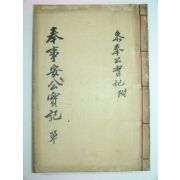 奉事安公實記 單
參奉公實記 附